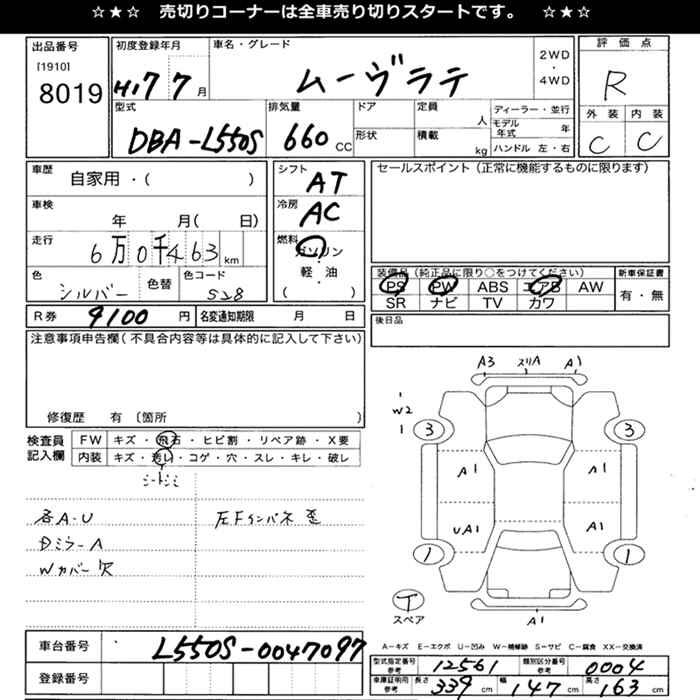 ☆★☆ 売切りコーナーは全車売り切りスタートです。 ☆★☆
出品番号
[1910]
8019
初度登録年月
H17 7 月
車名・グレード
ムーヴラテ
2WD
・
4WD
評価点
R
外装 内装
C C
型式
DBA-L550S
排気量
660 CC
ドア
形状
定員
人
積載
kg
ディーラー・並行
モデル年式 年
ハンドル 左・右
車歴
自家用・( )
車検
年 月( 日)
走行
6万0千463 km
色
シルバー
色替
色コード
S28
シフト
AT
冷房
AC
燃料
ガソリン
・
軽・油
( )
セールスポイント(正常に機能するものに限ります)
装備品(純正品に限り○をつけてください)
PS PW ABS エアB AW
SR ナビ TV カワ
新車保証書
有・無
R券 9100 円
名変通知期限 月 日
後日品
注意事項申告欄(不具合内容等は具体的に記入して下さい)
修復歴 有 〔箇所 )
検査員記入欄
FW キズ・飛石・ヒビ割・リペア跡・X要
内装 キズ・汚レ・コゲ・穴・スレ・キレ・破レ
シートシミ
各A-U
Dミラ-A
Wカバー欠
左Fインパネ歪
A3 スリA A1
W2
3 3
A1 A1
UA1 A1
1 1
T
スペア
A1
A-キズ E-エクボ U-凹み W-補修跡 S-サビ C-腐食 XX-交換済
車台番号
L550S-0047097
登録番号
型式指定番号 参考 12561
類別区分番号 参考 0004
車庫証明用 参考 長さ 339 cm 幅 147 cm 高さ 163 cm